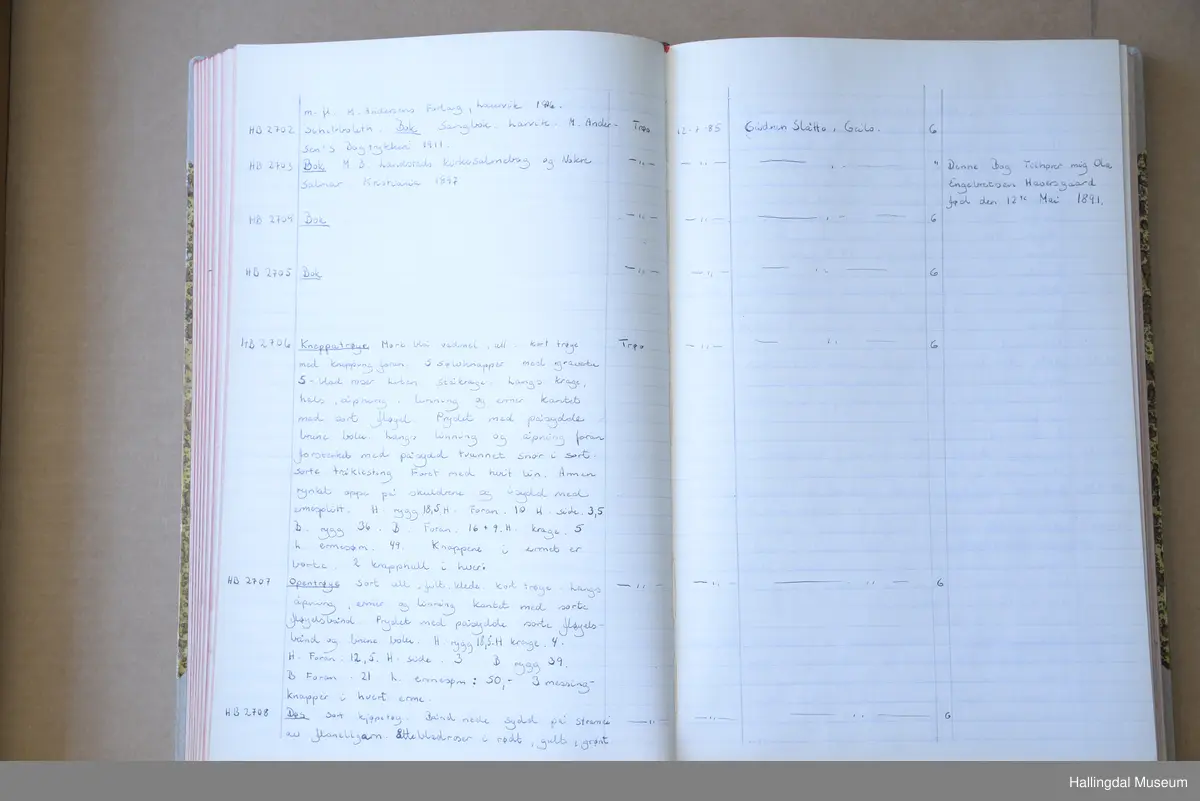 m. fl. M. Andersens Forlag, Laurvik 1916.
HB 2702 Bok Sangbok. Larvik. M. Ander- Trøo 2-7-85 Gudrun Slåtto, Geilo. G
sen's Bogtrykkeri 1911.
HB 2703 Bok M.B. Landstads Kirkesalmebog og Nokre —〃— —〃— —〃— " Denne Bog Tilhører mig Ole
Salmar Kristiania 1897 Engebretsen
født den 12te Mai 1891.
HB 2704 Bok —〃— —〃— —〃— G
HB 2705 Bok —〃— —〃— —〃— G
HB 2706 Knappatrøye Mørk blå vadmel, ull. Kort trøye Trøo —〃— —〃— G
med knapping foran. 5 sølvknapper med graverte
5-blad roser Liten ståkrage. Langs krage,
hals, åpning, linning og ermer kantet
med sort fløyel. Prydet med påsydde
brune boler. Langs linning og åpning foran
forsterket med påsydd tvunnet snor i sort.
Sorte Fôret med hvit lin. Armen
rynket oppe på skuldrene og isydd med
ermesplott. H. rygg 18,5. H. Foran. 10 H. side. 3,5
B. rygg 36. B. Foran. 16+9. H. krage. 5
L. ermesøm. 49. Knappene i ermet er
borte. 2 knapphull i hver.
HB 2707 Opentrøye Sort ull, klede. Kort trøye. Langs —〃— —〃— —〃— G
åpning, ermer og linning kantet med sorte
fløyelsbånd Prydet med påsydde sorte fløyels-
bånd og brune boler. H rygg 18,5. H krage. 4.
H. Foran. 12,5. H. side. 3 B rygg 39.
B Foran. 21 L. ermesøm: 50,- 3 messing-
knapper i hvert erme.
HB 2708 Sort kjøpetøy. Bånd nede sydd på stramei —〃— —〃— —〃— G
av flanellgarn. Åttebladroser i rødt, gult, grønt
Hallingdal Museum